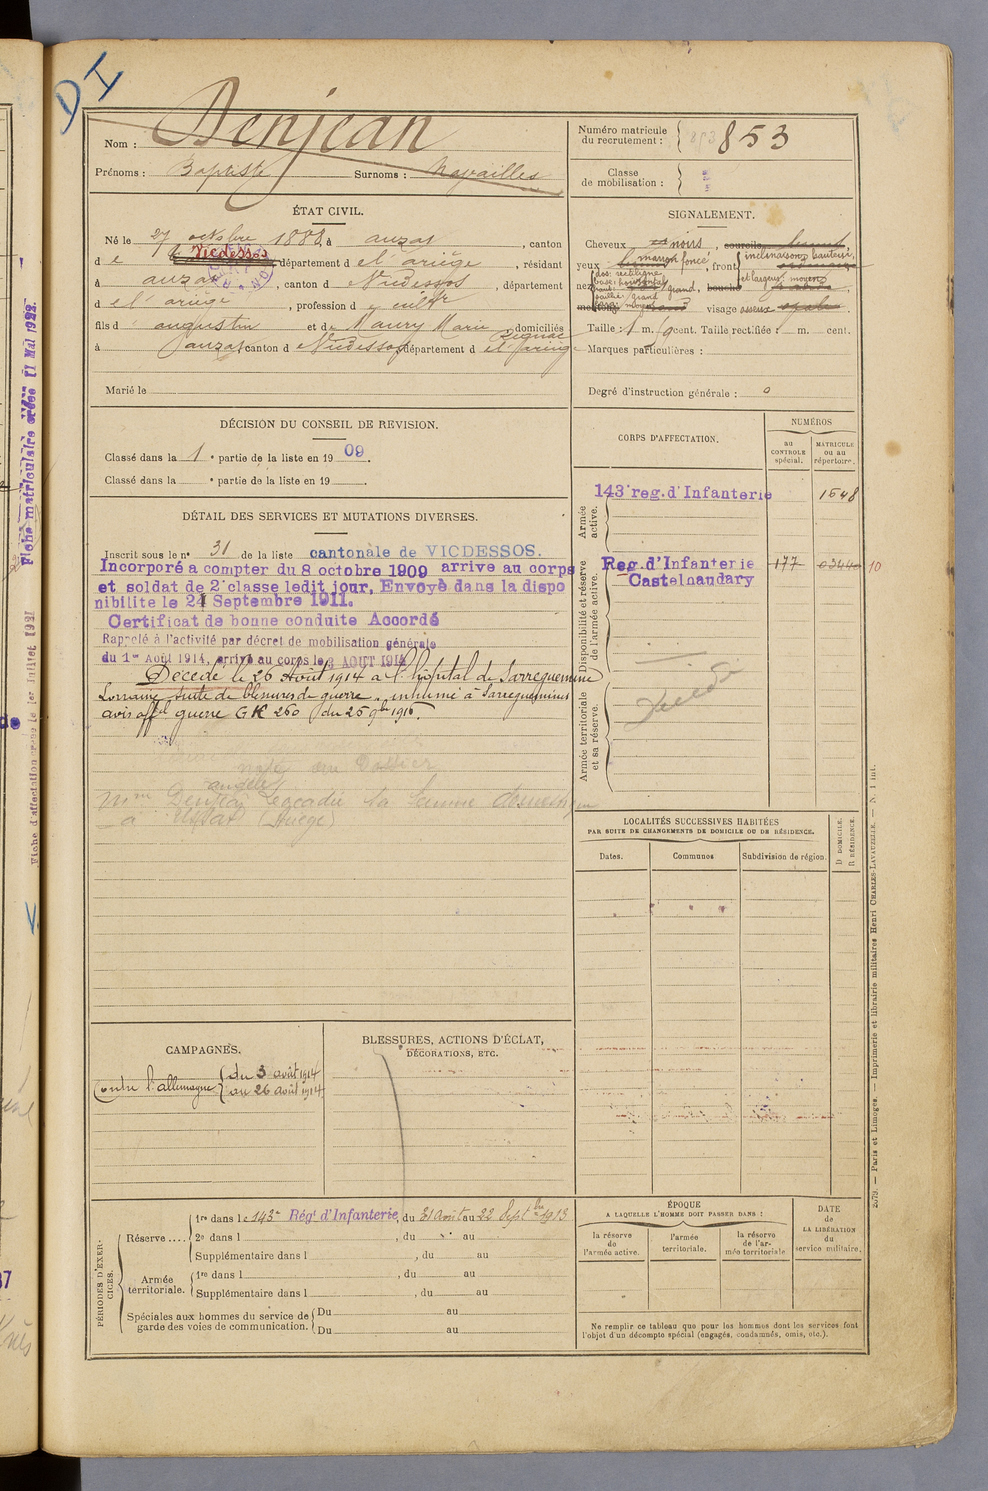 DI
Nom : Denjean
Prénoms : Baptiste Surnoms : Navailles
Numéro matricule du recrutement : 853
Classe de mobilisation :
ÉTAT CIVIL.
Né le 27 octobre 1888, à auzat, canton
de Vicdessos département de l'ariège, résidant
à auzat, canton d Vicdessos, département
d e l'ariège, profession d cultr
fils d augustin et de Maury Marie domiciliés
à auzat canton d Vicdessos département d e l'ariège
Marié le
SIGNALEMENT.
Cheveux noirs, sourcils
yeux marron foncé, front inclinaison hauteur
et largeur moyens
nez dos: rectiligne
base: horizontale
grand, bouche
menton visage osseux ovale
Taille : 1 m. cent. Taille rectifiée : m. cent.
Marques particulières :
Degré d'instruction générale : 0
DÉCISION DU CONSEIL DE REVISION.
Classé dans la 1 e partie de la liste en 1909.
Classé dans la e partie de la liste en 19
CORPS D'AFFECTATION.
NUMÉROS
au CONTROLE spécial.
MATRICULE ou au répertoire.
Armée active.
143e reg. d'Infanterie 1548
Disponibilité et réserve de l'armée active.
Reg. d'Infanterie 177 0344 10
Castelnaudary
Armée territoriale et sa réserve.
DÉTAIL DES SERVICES ET MUTATIONS DIVERSES.
Inscrit sous le no 31 de la liste cantonale de VICDESSOS.
Incorporé a compter du 8 octobre 1909 arrive au corps
et soldat de 2e classe ledit jour, Envoyé dans la dispo
nibilite le 24 Septembre 1911.
Certificat de bonne conduite Accordé
Rappelé à l'activité par décret de mobilisation générale
du 1er Août 1914, arrivé au corps le 3 AOUT 1914
Décédé le 26 Août 1914 à l'hôpital de Sarreguemine
Lorraine suite de blessures de guerre, inhumé à Sarreguemines
avis offel guerre GK 260 du 25 9bre 1916.
note au Dossier
angèle
la femme
à (Ariège)
LOCALITÉS SUCCESSIVES HABITÉES
PAR SUITE DE CHANGEMENTS DE DOMICILE OU DE RÉSIDENCE.
Dates. Communes Subdivision de région.
D DOMICILE.
R RÉSIDENCE.
CAMPAGNES.
Contre l'allemagne du 3 août 1914
au 26 août 1914
BLESSURES, ACTIONS D'ÉCLAT,
DÉCORATIONS, ETC.
PÉRIODES D'EXERCICES.
Réserve ....
1re dans le 143e Régt d'Infanterie, du 31 août au 22 Septbre 1913
2e dans l , du au
Supplémentaire dans l , du au
Armée territoriale.
1re dans l , du au
Supplémentaire dans l , du au
Spéciales aux hommes du service de garde des voies de communication.
Du au
Du au
ÉPOQUE
A LAQUELLE L'HOMME DOIT PASSER DANS :
la réserve de l'armée active.
l'armée territoriale.
la réserve de l'armée territoriale
DATE de LA LIBÉRATION du service militaire.
Ne remplir ce tableau que pour les hommes dont les services font
l'objet d'un décompte spécial (engagés, condamnés, omis, etc.).
2079. — Paris et Limoges. — Imprimerie et librairie militaires Henri CHARLES-LAVAUZELLE. — N. 1 int.
Fiche matriculaire créée 11 Mai 1922.
Fiche d'affectation créée le 1er Juillet 1921